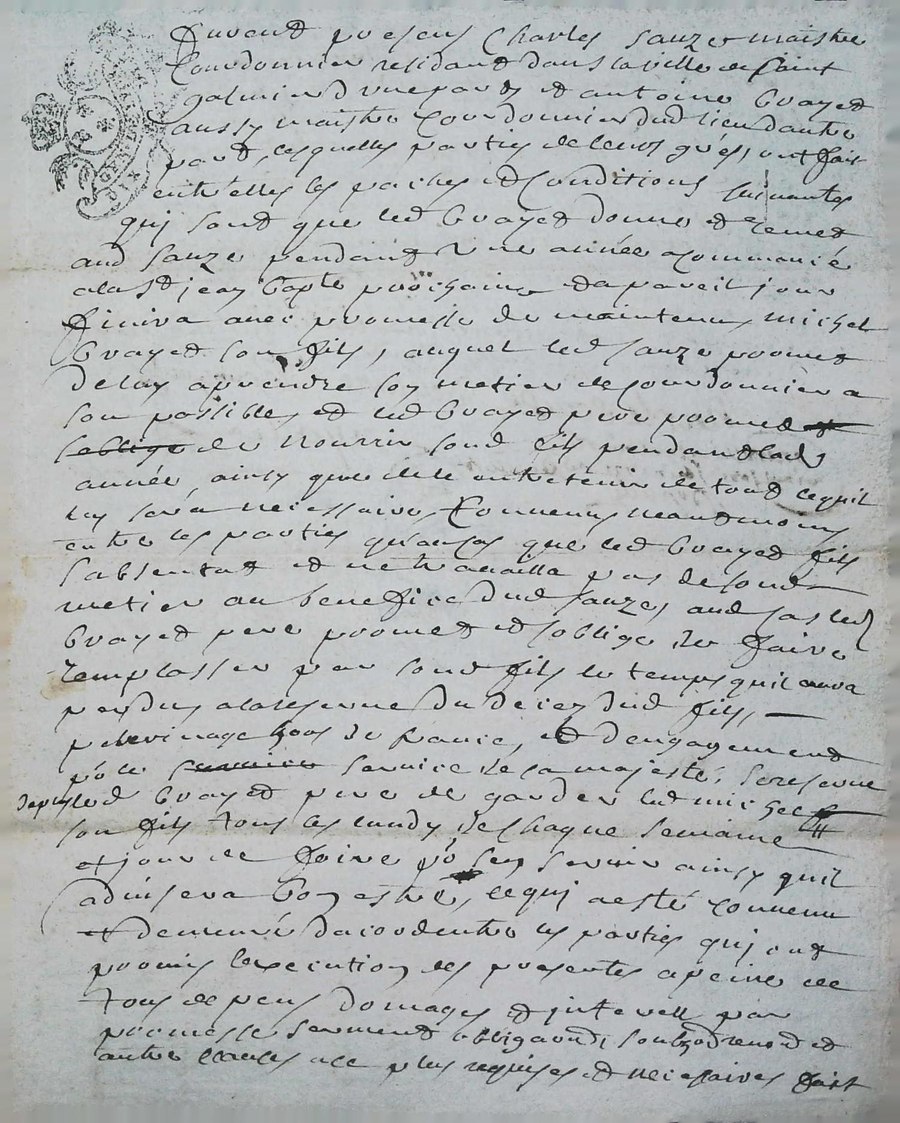 Furent presens Charles Sauze maistre
Courdonnier residant dans la ville de saint
galmier d'une part et antoine Brayet
aussy maistre Courdonnier dud lieu dautre
part, lesquelles parties de leurs grés, ont fait
entre elles les paches et Conditions suivantes
qui sont que led Brayet donne et remet
aud Sauze pendant une année a Commancé
a la St jean Bapte prochaine et a pareil jour
finira avec promesse de maintenir michel
Brayet son fils, auquel led Sauze promet
de luy aprendre son metier de Courdonnier a
son possible, et led Brayet pere promet et
soblige de nourrir sond fils pendant lad
année, ainsy que de le entretenir de tout ce quil
luy sera necessaire, Convenus neantmoins
entre les parties qu'au cas que led Brayet fils
s'absentat et ne travailla pas de sond
metier au benefice dud Sauze, aud cas led
Brayet pere promet et soblige de faire
remplasser par sond fils le temps quil aura
perdus a la reserve du deces dud fils,
pelerinage hors de france, et d'engagement
po le service service de sa majesté, se reserve
de plus led Brayet pere de garder led michel
son fils tous les lundy de chaque semaine
et jour de foire po sen servir ainsy quil
advisera bon estre, ce qui a esté convenu
et demeuré dacord entre les parties qui ont
promis lexecution des presentes a peine de
tous depens domages et interest par
promesse serment obligaon et
autre clauses a ce plus requises et necessaires fait
DIX